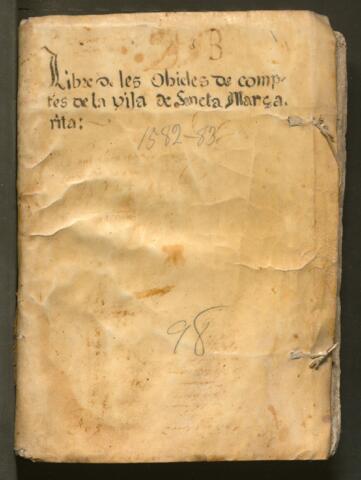 B
Libre de les Obides de comp-
tes de la vila de Sancta Marga-
rita:
1582-83-
98